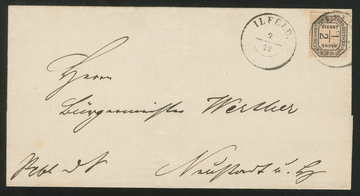 ILFELD.
9
12
1
2
Herrn
Bürgermeister Werther
Neustadt u. H